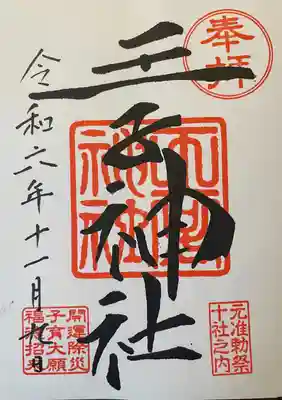 奉拝
王子神社
令和六年十一月九日
元准勅祭
十社之内
開運除災
子育大願
福徳招来